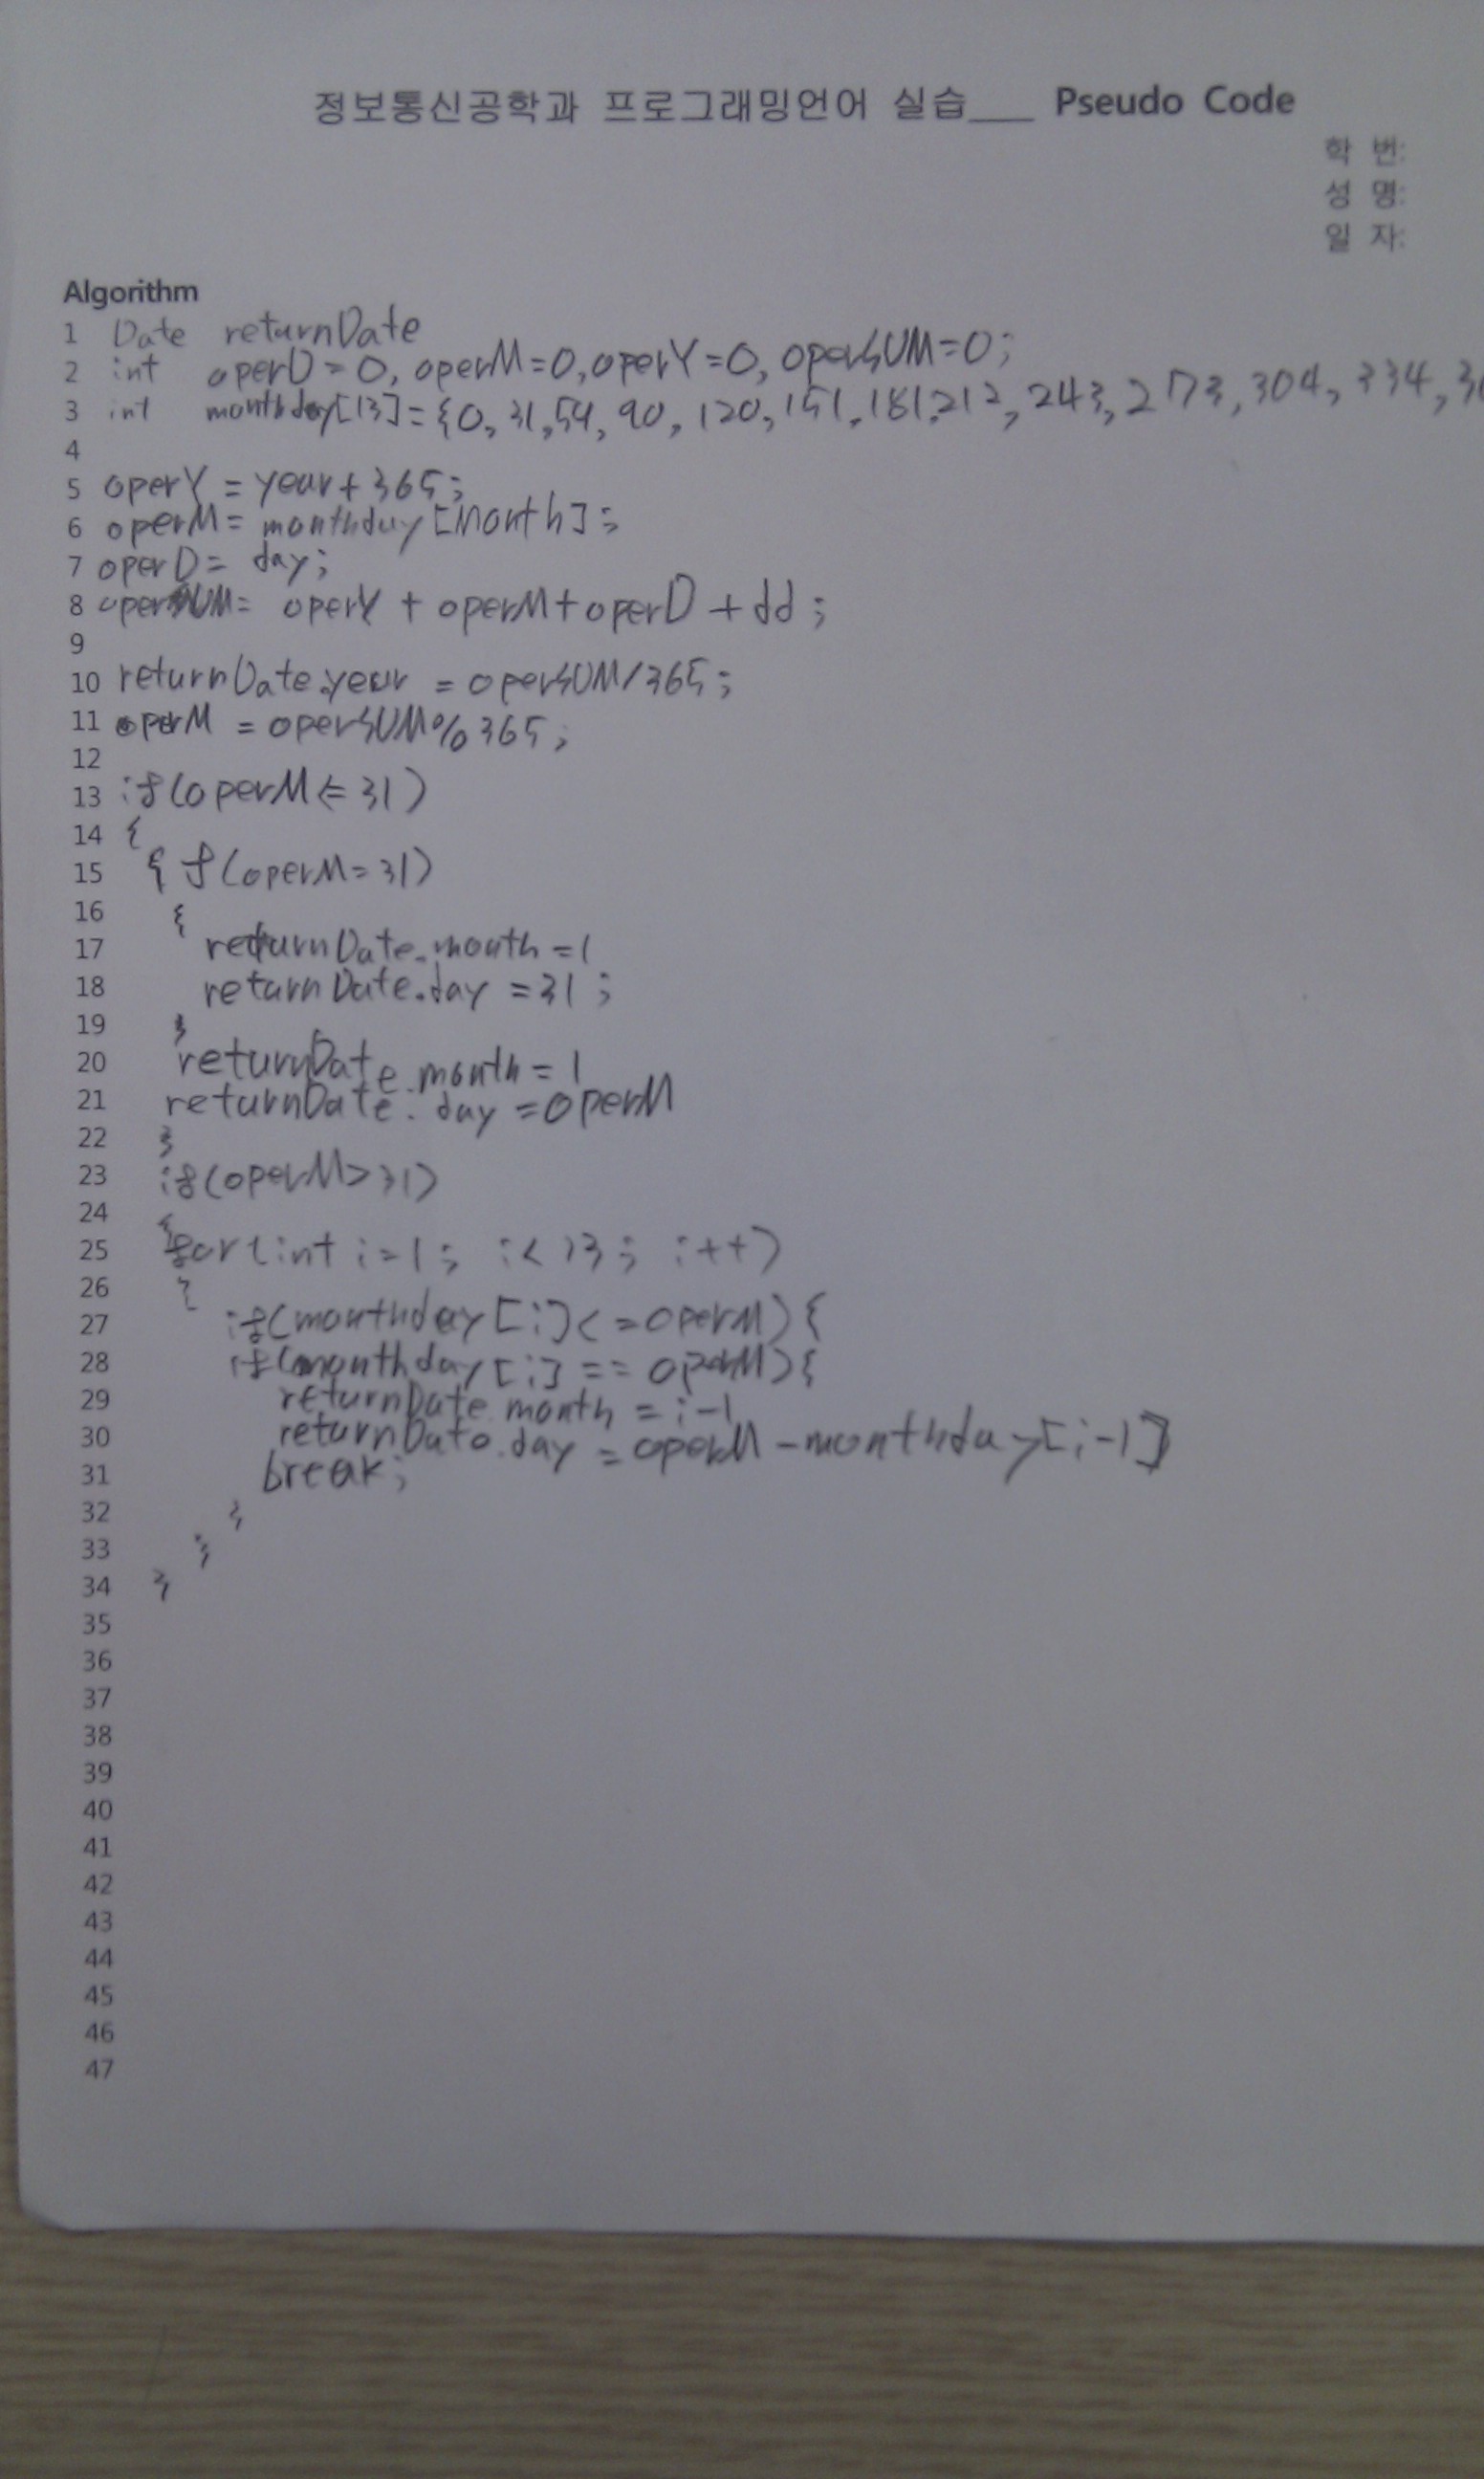 정보통신공학과 프로그래밍언어 실습___ Pseudo Code
학 번:
성 명:
일 자:
Algorithm
1 Date returnDate
2 int operD=0, operM=0, operY=0, operSUM=0;
3 int monthday[13]={0,31,59,90,120,151,181,212,243,273,304,334,
4
5 operY = year+365;
6 operM= monthday[Month];
7 operD= day;
8 operSUM= operY + operM+operD+dd;
9
10 returnDate.year = operSUM/365;
11 operM = operSUM%365;
12
13 if(operM<=31)
14 {
15 if(operM=31)
16 {
17 returnDate.month=1
18 returnDate.day=31;
19 }
20 returnDate.month=1
21 returnDate.day=operM
22 }
23 if(operM>31)
24 {
25 for(int i=1; i<13; i++)
26 {
27 if(monthday[i]<=operM){
28 if(monthday[i]==operM){
29 returnDate.month=i-1
30 returnDate.day=operM-monthday[i-1]
31 break;
32 }
33 }
34 }
35
36
37
38
39
40
41
42
43
44
45
46
47